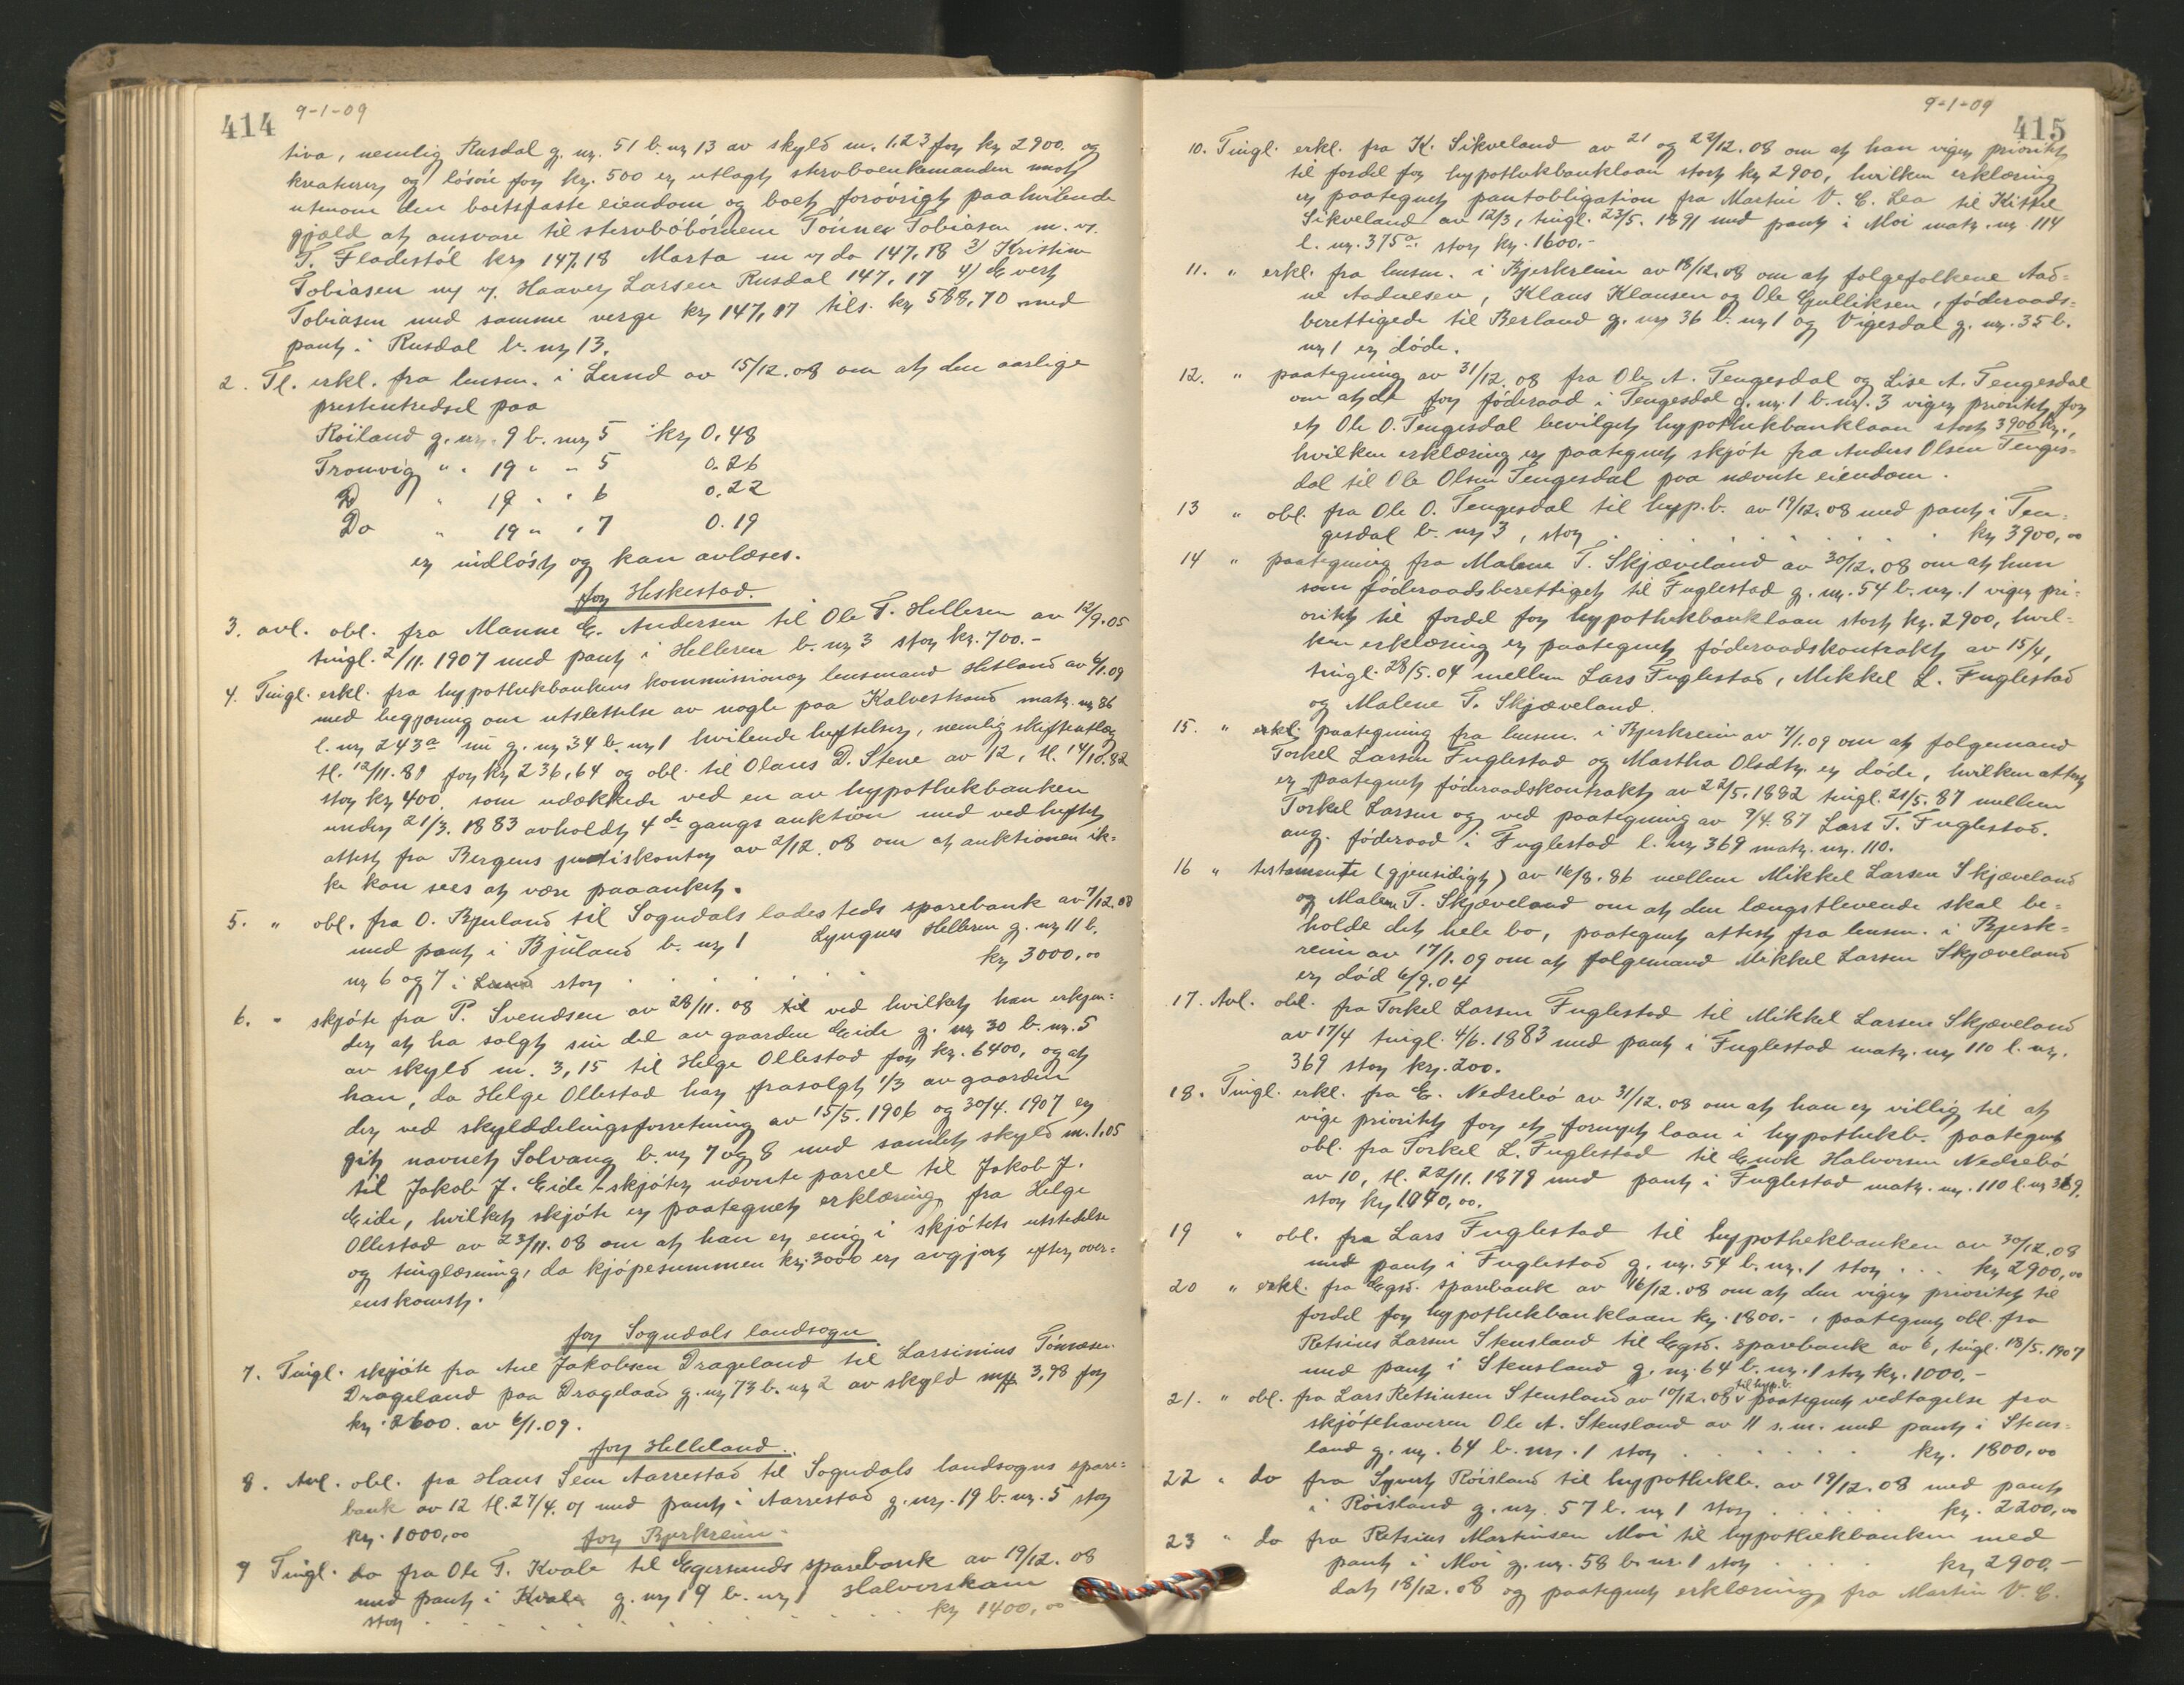 414 9-1-09
tiva, nemlig Rusdal g. nr. 51 b. nr 13 av skyld m. 1.23 for kr 2900 og
kreaturer og lösöre for kr. 500 er utlagt stervboenkemanden mot
utenom den boetsfaste eiendom og boet forövrigt paahvilende
gjæld at ansvare til stervböbörnene Tönnes Tobiasen m. v.
T. Fladestöl kr 147,18 Marta m v do 147.18 3) Kristine
Tobiasen m v. Haaver Larsen Rusdal 147.17 4) Evert
Tobiasen med samme verge kr 147,17 tils. kr 588,70 med
pant i Rusdal b. nr 13.
2. Tl. erkl. fra lensm. i Lund av 15/12.08 om at den aarlige
prestentredsel paa
Röiland g. nr. 9 b. nr 5 kr 0,48
Tronvig " . 19 " " 5 0.26
D " 19 . " 6 0,22
Do " 19 " . 7 0.19
er indlöst og kan avlæses.
for Heskestad.
3. avl. obl. fra Manne E. Andersen til Ole T. Helleren av 12/9.05
tingl. 2/11. 1907 med pant i Helleren b. nr 3 stor kr. 700.-
4. Tingl. erkl. fra hypothekbankens kommissionær lensmand Hetland av 6/1.09
med begjæring om utslettelse av nogle paa Kalvestrand matr. nr 86
l. nr 243a nu g. nr 34 b. nr 1 hvilende heftelser, nemlig skifteutlæg
tl. 12/11.81 for kr 236,64 og obl. til Olaus D. Stene av 12, tl. 14/10.82
stor kr 400, som udækkede ved en av hypothekbanken
under 21/3. 1883 avholdt 4de gangs auktion med vedheftet
attest fra Bergens justiskontor av 2/12.08 om at auktionen ik-
ke kan sees at være paaanket.
5. " obl. fra O. Bjuland til Sogndals ladesteds sparebank av 7/12.08
med pant i Bjuland b. nr 1 Lyngnes Helleren g. nr 11 b.
nr 6 og 7 i Lund stor . . . . . . kr 3000,00
6. " skjöte fra P. Svendsen av 28/11. 08 til ved hvilket han erkjen-
der at ha solgt sin del av gaarden Eide g. nr 30 b. nr. 5
av skyld m. 3,15 til Helge Ollestad for kr. 6400, og at
han, da Helge Ollestad har frasolgt 1/3 av gaarden
der ved skylddelingsforretning av 15/5. 1906 og 30/4. 1907 er
git navnet Solvang b. nr 7 og 8 med samlet skyld m. 1.05
til Jakob J. Eide - skjöter nævnte parcel til Jakob J.
Eide, hvilket skjöte er paategnet erklæring fra Helge
Ollestad av 23/11. 08 om at han er enig i skjötets utstedelse
og tinglæsning, da kjöpesummen kr. 3000 er avgjort efter over-
enskomst.
for Sogndals landsogn
7. Tingl. skjöte fra Ane Jakobsen Drageland til Larsinius Tönnesen
Drageland paa Dragelaand g. nr 73 b. nr 2 av skyld m 3,98 for
kr. 2600. av 6/1.09.
for Helleland.
8. Avl. obl. fra Hans Sem Aarrestad til Sogndals landsogns spare-
bank av 12 tl. 27/4. 07 med pant i Aarrestad g. nr. 19 b. nr. 5 stor
kr. 1000,00
for Bjerkreim.
9 Tingl. do fra Ole T. Kvale til Egersunds sparebank av 19/12. 08
med pant i Kvale g. nr 19 b. nr 1 Halvorskam
stor . . . . . . . . kr 1400,00
9-1-09 415
10. Tingl. erkl. fra K. Sikveland av 21 og 22/12.08 om at han viger prioritet
til fordel for hypothekbanklaan stort kr 2900, hvilken erklæring
er paategnet pantobligation fra Martin V. E. Lea til Kittel
Sikveland av 12/3, tingl. 23/5. 1891 med pant i Moi matr. nr. 114
l. nr. 375a. stor kr. 1600.-
11. " erkl. fra lensm. i Bjerkreim av 18/12.08 om at folgefolkene Aad-
ne Aadnesen, Klaus Klausen og Ole Gulliksen, föderaads-
berettigede til Berland g. nr 36 b. nr 1 og Vigesdal g. nr. 35 b.
nr 1 er döde.
12. " paategning av 31/12.08 fra Ole A. Tengesdal og Lise A. Tengesdal
om at de for föderaad i Tengesdal g. nr. 1 b. nr. 3 viger prioritet for
et Ole O. Tengesdal bevilget hypothekbanklaan stort 3900 kr.,
hvilken erklæring er paategnet skjöte fra Anders Olsen Tenges-
dal til Ole Olsen Tengesdal paa nævnte eiendom.
13 " obl. fra Ole O. Tengesdal til hyp.b. av 19/12.08 med pant i Ten-
gesdal b. nr 3, stor . . . . . . . kr 3900,00
14 " paategning fra Malene T. Skjæveland av 30/12.08 om at hun
som föderaadsberettiget til Fuglestad g. nr. 54 b. nr. 1 viger pri-
oritet til fordel for hypothekbanklaan stort kr. 2900, hvil-
ken erklæring er paategnet föderaadskontrakt av 15/4,
tingl. 28/5.04 mellem Lars Fuglestad, Mikkel L. Fuglestad
og Malene T. Skjæveland.
15. " erkl. paategning fra lensm. i Bjerkreim av 7/1.09 om at folgemand
Torkel Larsen Fuglestad og Martha Olsdtr. er döde, hvilken attest
er paategnet föderaadskontrakt av 22/5.1882 tingl. 21/5.87 mellem
Torkel Larsen og ved paategning av 9/4.87 Lars T. Fuglestad.
ang. föderaad i Fuglestad l. nr 369 matr. nr. 110.
16 " testamente (gjensidigt) av 16/8.86 mellem Mikkel Larsen Skjæveland
og Malene T. Skjæveland om at den længstlevende skal be-
holde det hele bo, paategnet attest fra lensm. i Bjerk-
reim av 17/1.09 om at folgemand Mikkel Larsen Skjæveland
er död 6/9.04
17. Avl. obl. fra Torkel Larsen Fuglestad til Mikkel Larsen Skjæveland
av 17/4 tingl. 4/6. 1883 med pant i Fuglestad matr. nr 110 l. nr.
369 stor kr. 200.
18. Tingl. erkl. fra E. Nedrebö av 31/12.08 om at han er villig til at
vige prioritet for et fornyet laan i hypothekb. paategnet
obl. fra Torkel L. Fuglestad til Enok Halvorsen Nedrebö
av 10, tl. 22/11. 1879 med pant i Fuglestad matr. nr. 110 l. nr 369.
stor kr 1040,00.
19 " obl. fra Lars Fuglestad til hypothekbanken av 30/12.08
med pant i Fuglestad g. nr. 54 b. nr. 1 stor . . . kr 2900,00
20 " erkl. fra Egsd. sparebank av 16/12.08 om at den viger prioritet til
fordel for hypothekbanklaan kr. 1800.-, paategnet obl. fra
Retsius Larsen Stensland til Egsd. sparebank av 6, tingl. 18/5.1907
med pant i Stensland g. nr. 64 b. nr. 1 stor kr. 1000.-
21. " obl. fra Lars Retsiusen Stensland av 10/12.08 til hyp.b. paategnet vedtagelse fra
skjötehaveren Ole A. Stensland av 11 s.m. med pant i Stens-
land g. nr. 64 b. nr. 1 stor . . . . . . kr. 1800,00
22 " do fra Syvert Röisland til hypothekb. av 19/12.08 med pant
i Röisland g. nr. 57 b. nr 1 stor . . . . kr. 2200,00
23 " do fra Retsius Martinsen Moi til hypothekbanken med
pant i Moi g. nr. 58 b. nr. 1 stor . . . . kr 2900.-
dat 18/12.08 og paategnet erklæring fra Martin V. E.